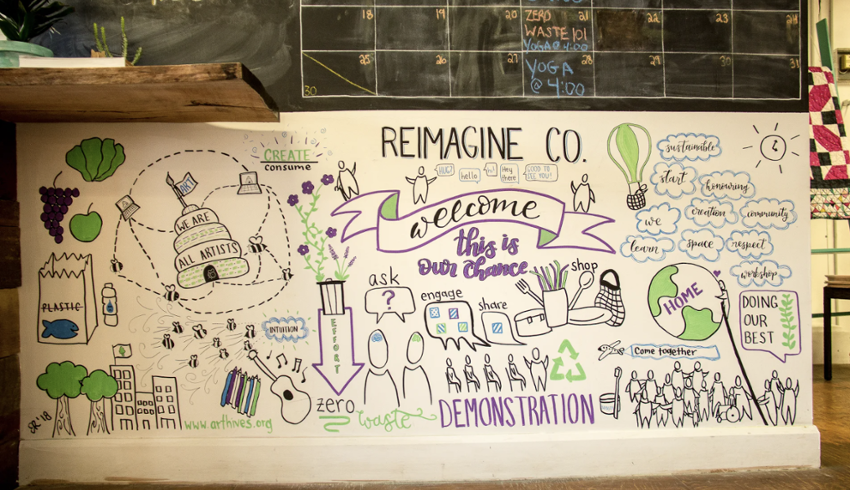 18 19 20 ZERO 21 22 23 24
WASTE 101
YOGA @ 4:00
25 26 27 YOGA 28 29 30 31
@ 4:00
30
REIMAGINE CO.
CREATE
consume
HUG?
hello
hi
Hey there
GOOD TO SEE YOU!
sustainable
start
honouring
we
creation
community
learn
space
respect
workshop
ART
WE ARE
ALL ARTISTS
welcome
this is
our chance
ask
?
engage
share
shop
HOME
DOING
OUR
BEST
PLASTIC
INTUITION
EFFORT
Come together
zero
waste
DEMONSTRATION
SR '18
www.arthives.org